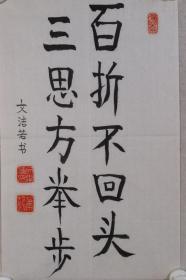 百折不回头
三思方举步
文洁若书